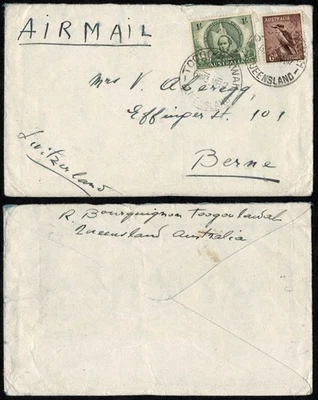 AIR MAIL
1/- 1/-
AUSTRALIA
AUSTRALIA
6D
QUEENSLAND
Mrs V. Aberegg
Effinger st. 101
Berne
Switzerland
R. Bourquignon Toogoolawah
Queensland Australia